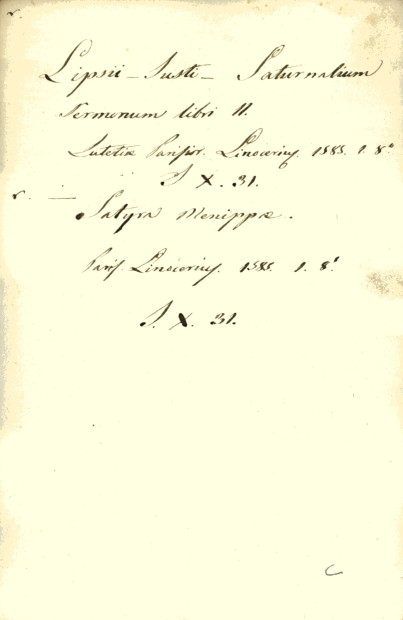 r.
Lipsii – Iusti – Saturnalium
Sermonum libri II.
Lutetiæ Parisior. Linocerius. 1585. 1. 8°
I X. 31.
r. — Satyra Menippæ.
Paris. Linocerius. 1585. 1. 8°
I. X. 31.
C